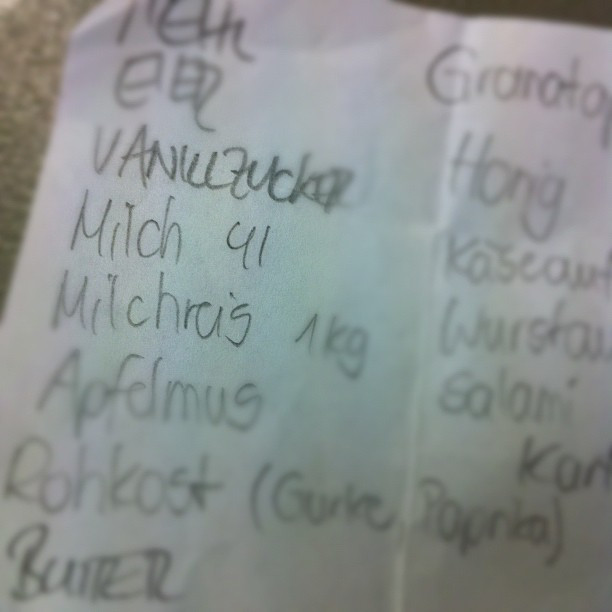 MEHL
EIER
VANILLZUCKER
Milch 4l
Milchreis 1kg
Apfelmus
Rohkost (Gurke, Paprika)
BUTTER
Granatap
Honig
Käseauf
Wurstau
Salami
Kart